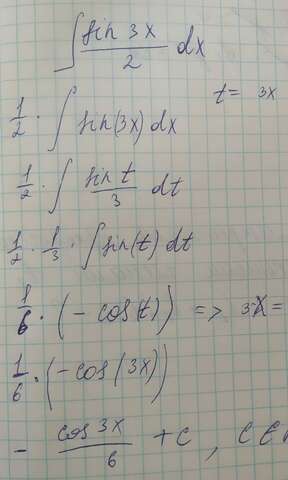 ∫ sin 3x / 2 dx
t = 3x
1/2 · ∫ sin(3x) dx
1/2 · ∫ sin t / 3 dt
1/2 · 1/3 · ∫ sin(t) dt
1/6 · (- cos(t)) => 3X =
1/6 · (-cos(3x))
- cos 3x / 6 + C , C ∈